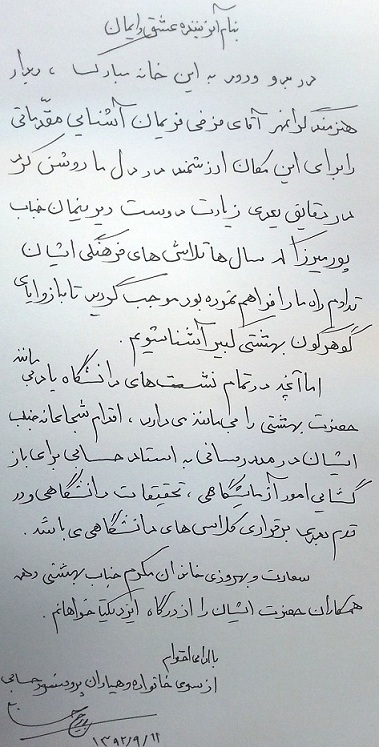 بنام آفریننده عشق و ایمان
در بدو ورود به این خانه مبارک ، دیدار
هنرمند گرانمهر آقای مرضی فریمان آشنایی مقدماتی
را برای این مکان ارزشمند در دل ما روشن کرد
در دقایق بعدی زیارت دوست دیرینمان جناب
پورمیرزا که سال‌ها تلاش‌های فرهنگی ایشان
تداوم راه ما را فراهم نموده بود موجب گردید تا با زوایای
گوهرگون بهشتی کبیر آشنا شویم .
اما آنچه در تمام نشست‌های دانشگاه یادمی ماند
حضرت بهشتی را می‌ماند ی دارد ، اقدام شجاعانه جناب
ایشان در مدد رسانی به استاد حسابی برای باز
گشایی امور آزمایشگاهی ، تحقیقات دانشگاهی و در
قدم بعدی برقراری کلاس‌های دانشگاهی می باشد .
سعادت و بهروزی خاندان مکرم جناب بهشتی و همه
همکاران حضرت ایشان را از درگاه ایزد یکتا خواهانم .
با ادای احترام
از سوی خانواده و همیاران پروفسور حسابی
۱۳۹۲/۹/۱۱